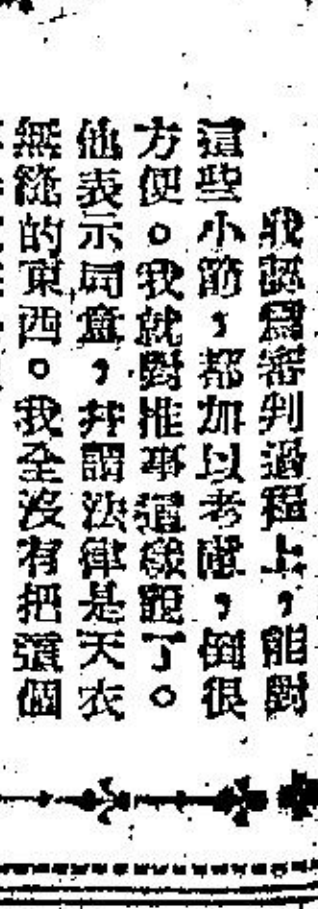 我認爲審判過程上，能對
這些小節，都加以考慮，倒很
方便。我就對推事這樣說了。
他表示同意，并謂法律是天衣
無縫的東西。我全沒有把這個